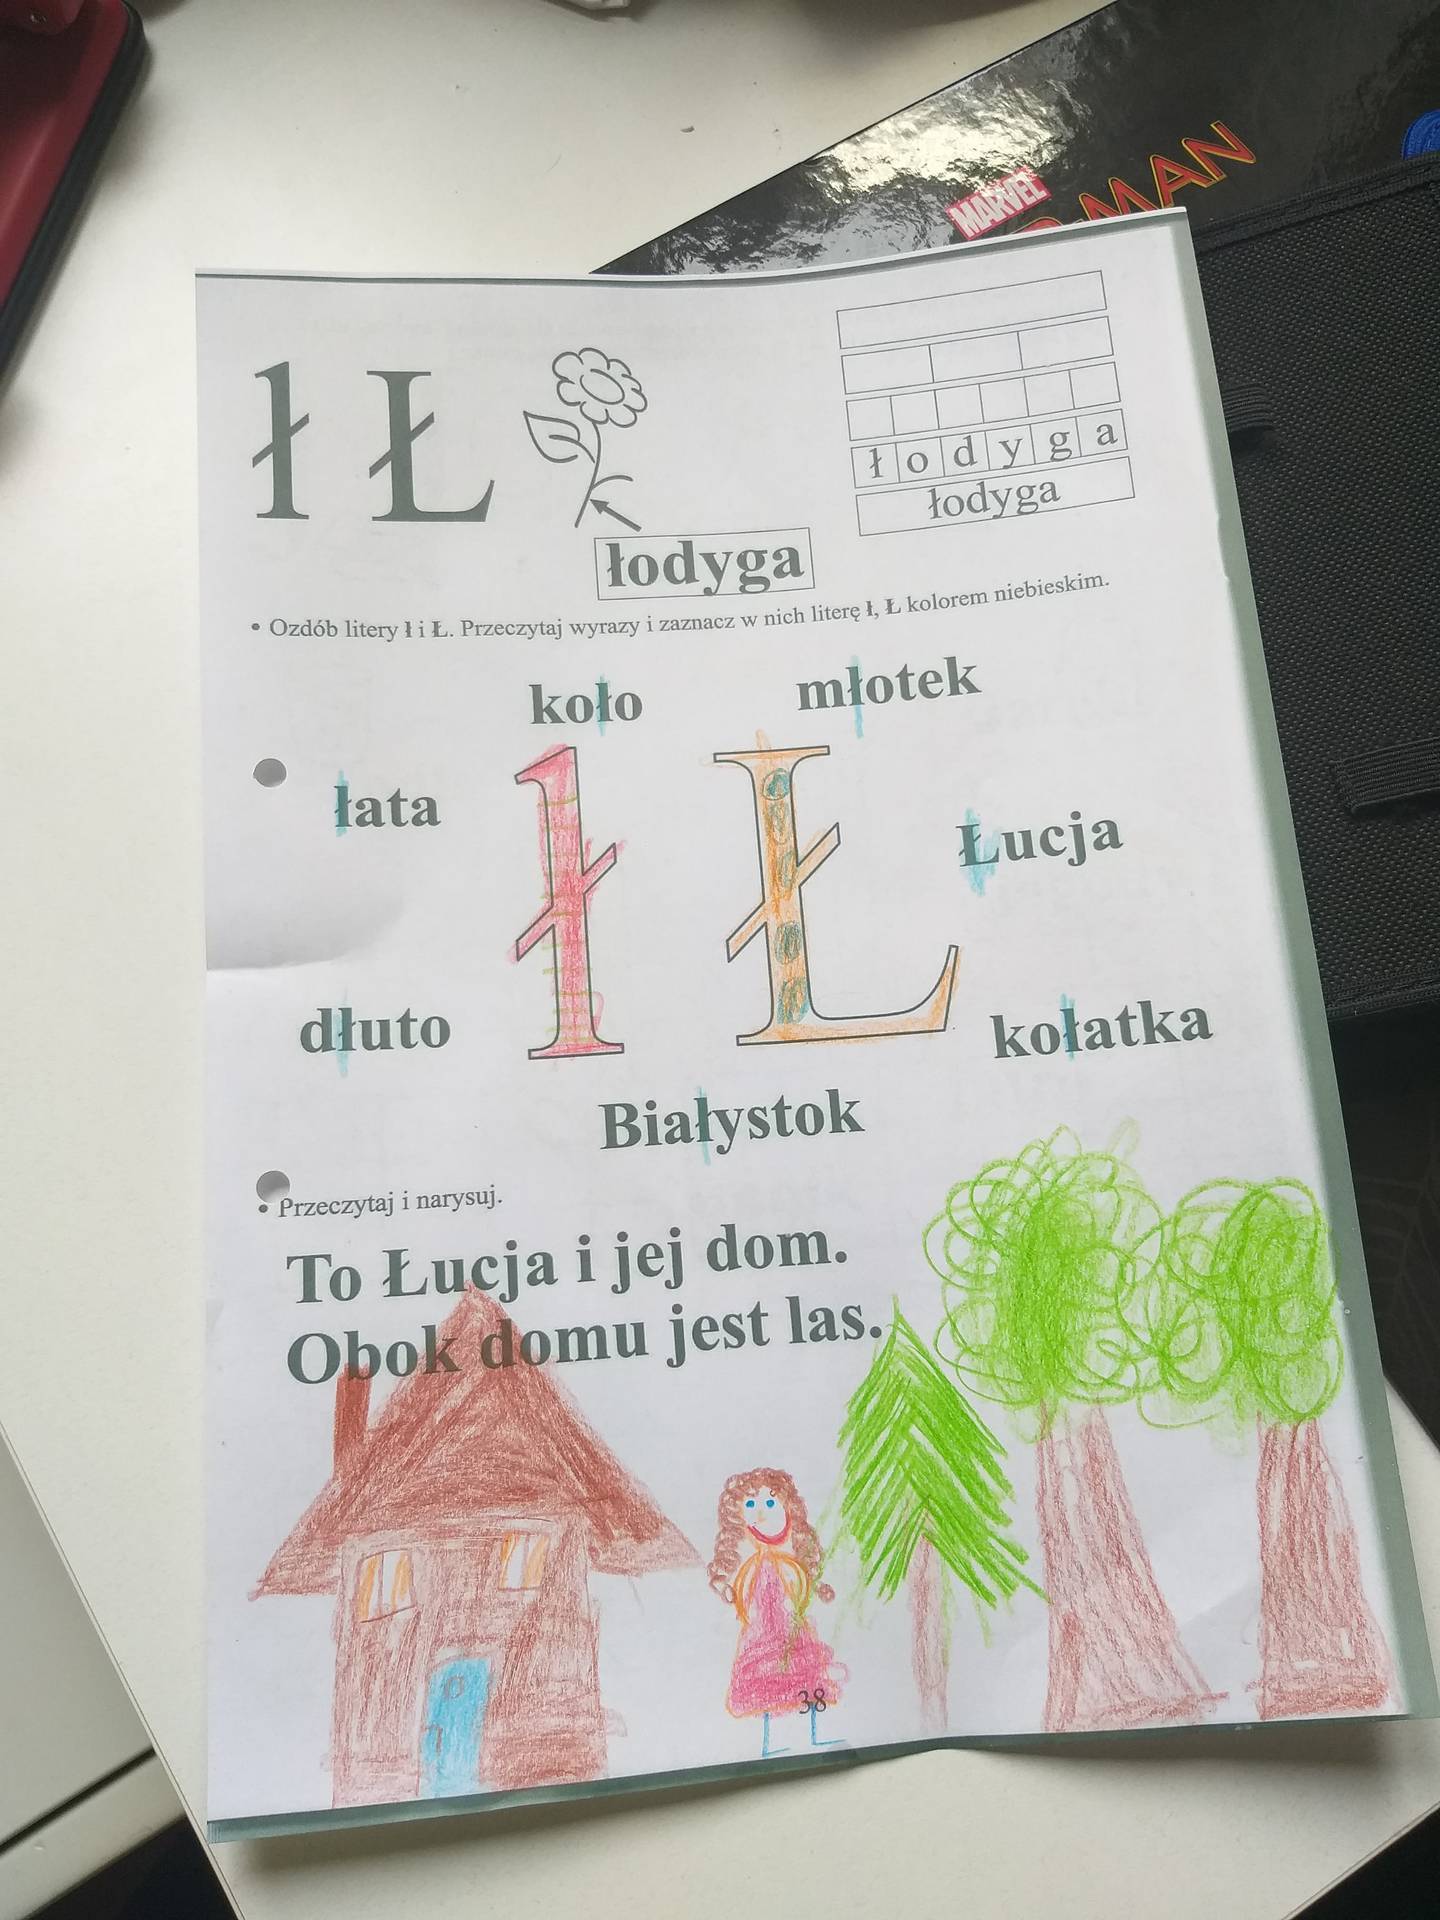 MARVEL
R-MAN
ł Ł
ł o d y g a
łodyga
łodyga
• Ozdób litery ł i Ł. Przeczytaj wyrazy i zaznacz w nich literę ł, Ł kolorem niebieskim.
koło
młotek
łata
ł Ł
Łucja
dłuto
kołatka
Białystok
• Przeczytaj i narysuj.
To Łucja i jej dom.
Obok domu jest las.
38